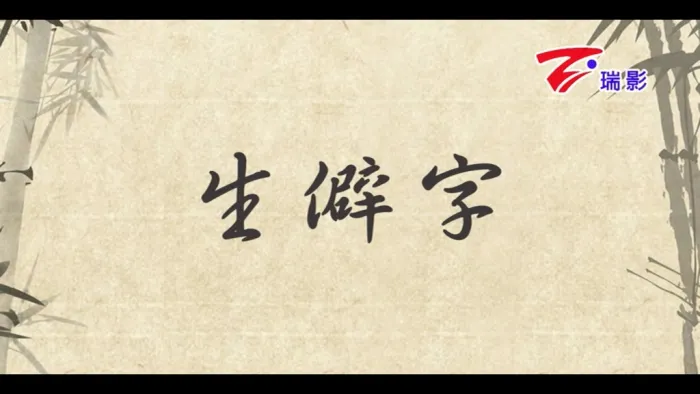 瑞影
生僻字